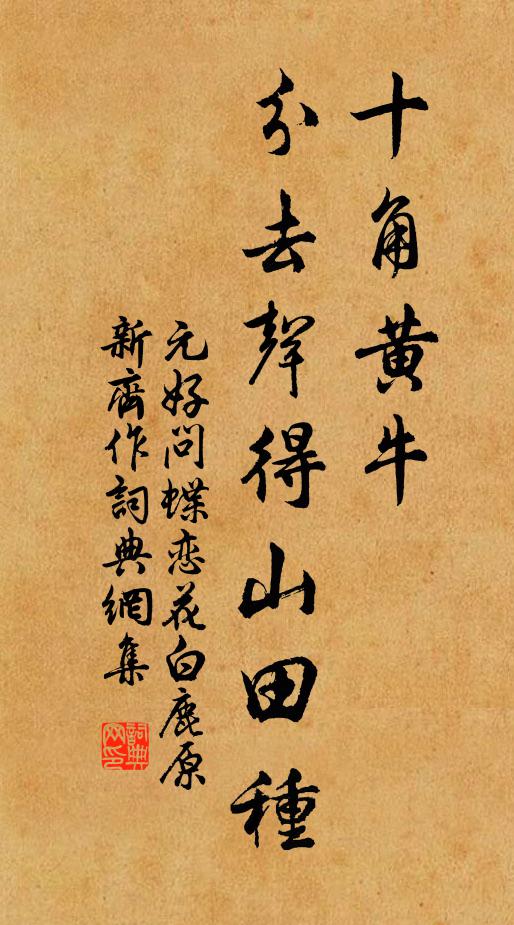 十角黄牛
分去聲得山田種
元好问蝶恋花白鹿原
新齋作詞典網集
詞典网印